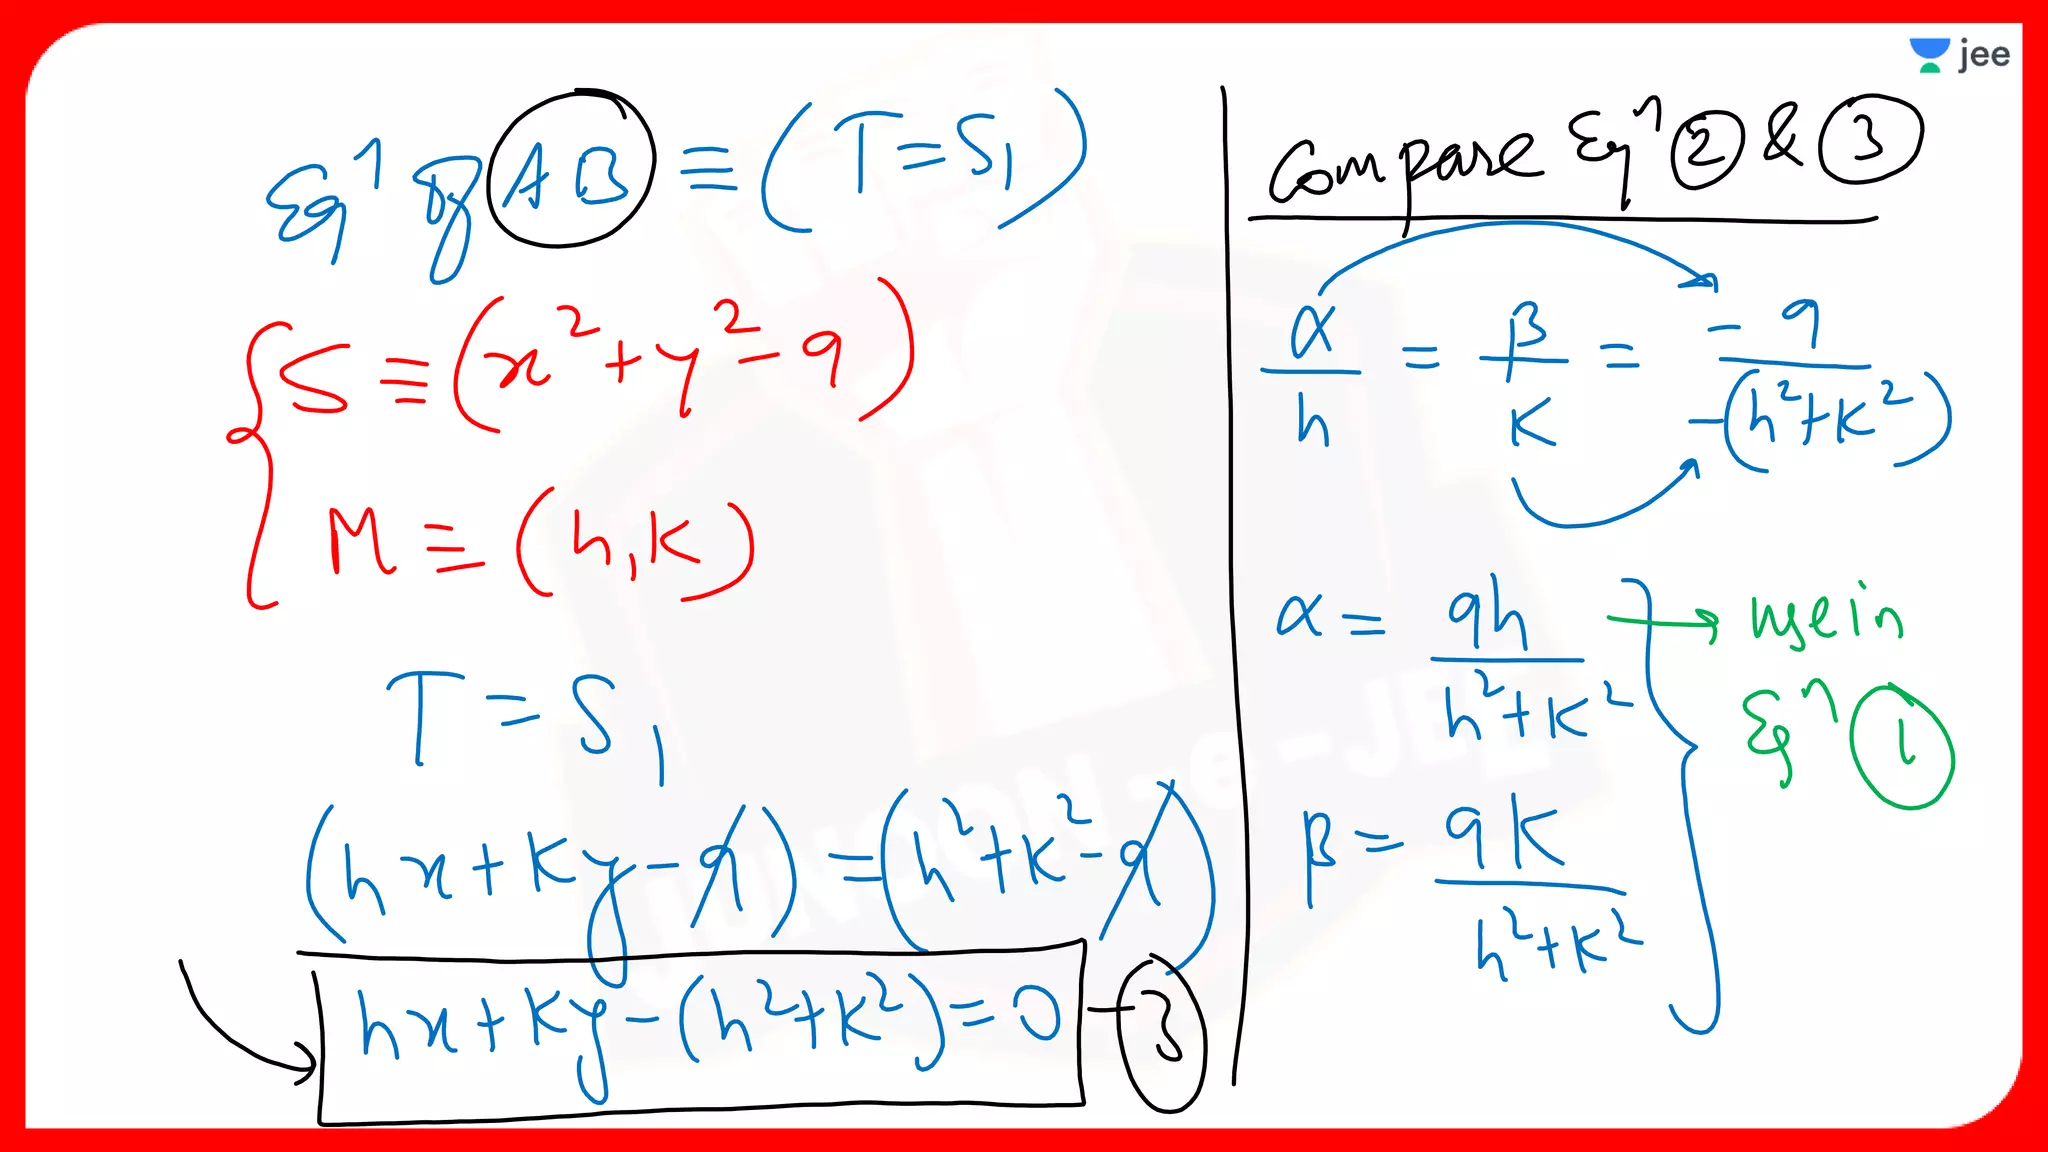 jee
Eqⁿ of AB ≡ (T = S₁)
S ≡ (x² + y² - 9)
M ≡ (h, k)
T = S₁
(hx + ky - 9) = (h² + k² - 9)
hx + ky - (h² + k²) = 0 - 3
Compare Eqⁿ 2 & 3
α/h = β/k = -9/-(h² + k²)
α = 9h/(h² + k²) → use in
Eqⁿ 1
β = 9k/(h² + k²)
JUNOON-e-JEE